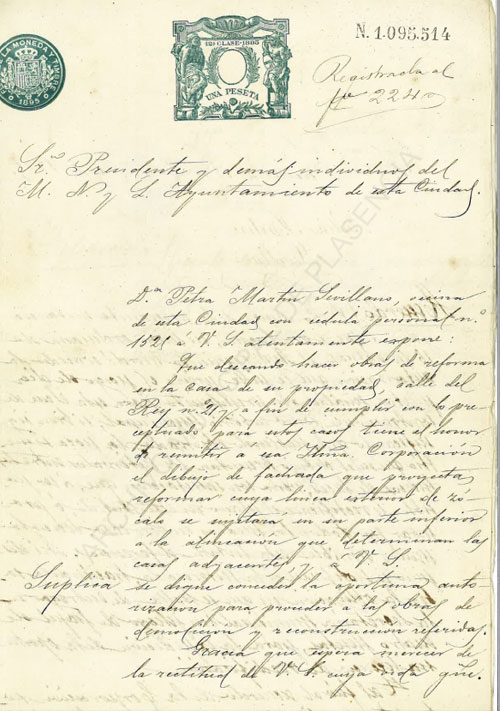 LA MONEDA Y TIMBRE
1895
12ª CLASE-1895
UNA PESETA
N.1.095.514
Registrada al
fº 224
Sr. Presidente y demás individuos del
M. N. y L. Ayuntamiento de esta Ciudad.
D.ª Petra Martin Sevillano, vecina
de esta Ciudad con cédula personal n.º
1521 a V. S. atentamente expone:
Que deseando hacer obras de reforma
en la casa de su propiedad, calle del
Rey nº 21 y a fin de cumplir con lo pre-
ceptuado para estos casos tiene el honor
de remitir á esa Iltma. Corporación
el dibujo de fachada que proyecta
reformar cuya linea exterior de zó-
calo se sujetara en su parte inferior
a la alineación que determinan las
casas adyacentes y a V. S.
Suplica se digne conceder la oportuna auto-
rización para proceder a las obras de
demolicion y reconstrucción referidas.
Gracia que espera merecer de
la rectitud de V. S. cuya vida gue.